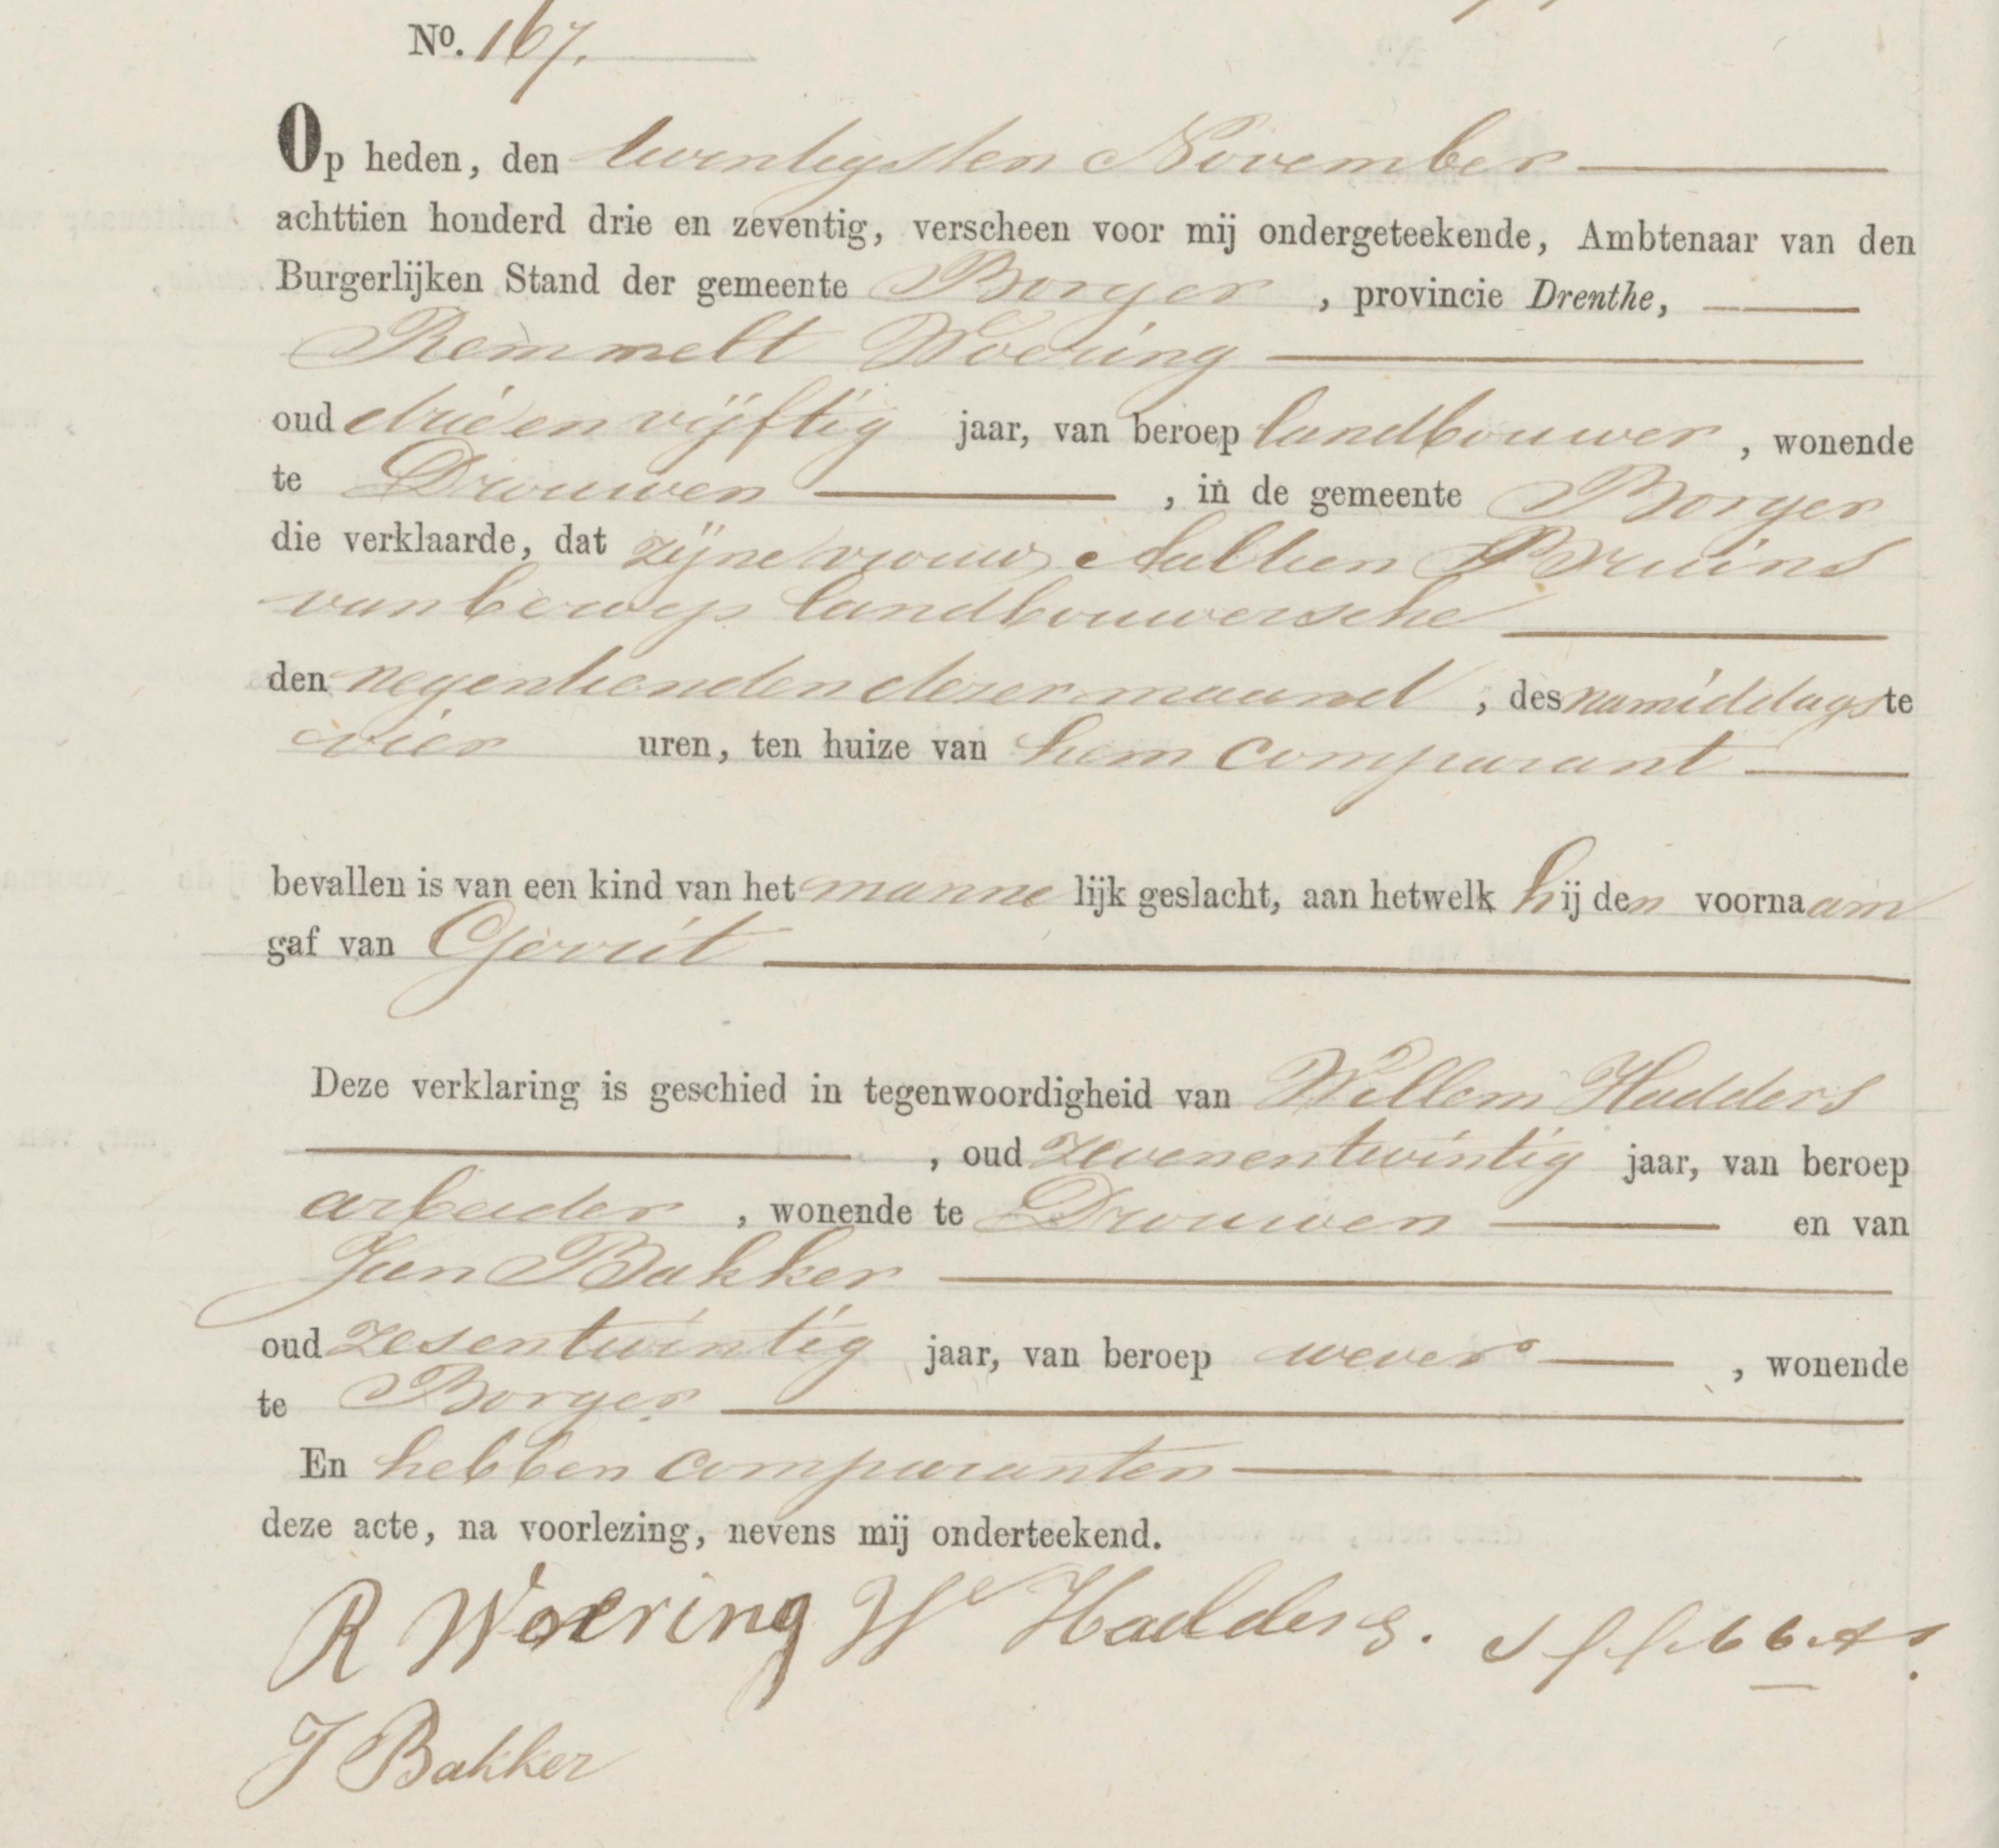 No. 167.
Op heden, den twintigsten November
achttien honderd drie en zeventig, verscheen voor mij ondergeteekende, Ambtenaar van den
Burgerlijken Stand der gemeente Borger, provincie Drenthe,
Remmelt Woering
oud drieenvijftig jaar, van beroep landbouwer, wonende
te Drouwen, in de gemeente Borger
die verklaarde, dat zijne vrouw Aaltien Bruins
van beroep landbouwersche
den negentienden dezer maand, des namiddags te
vier uren, ten huize van hem comparant
bevallen is van een kind van het mannelijk geslacht, aan hetwelk hij den voornaam
gaf van Gerrit
Deze verklaring is geschied in tegenwoordigheid van Willem Hadders
, oud zevenentwintig jaar, van beroep
arbeider, wonende te Drouwen en van
Jan Bakker
oud zesentwintig jaar, van beroep wever, wonende
te Borger
En hebben comparanten
deze acte, na voorlezing, nevens mij onderteekend.
R Woering W Hadders.
J Bakker